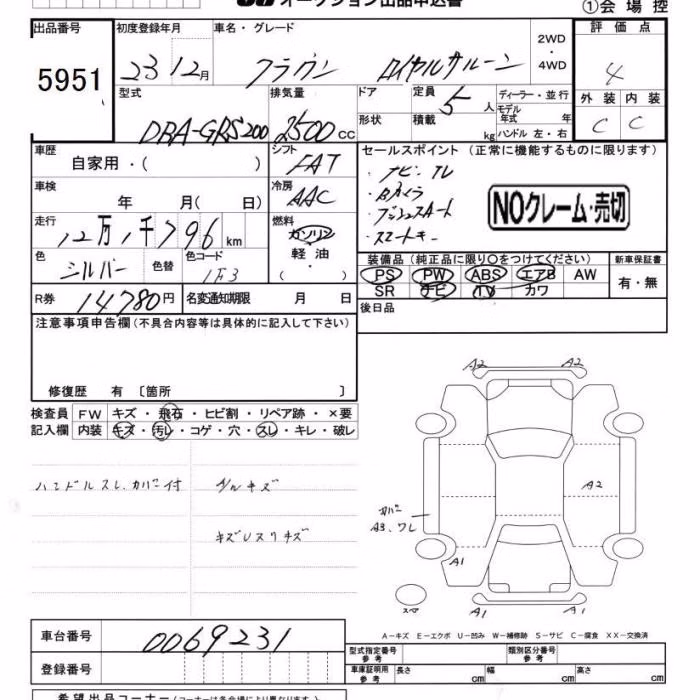 オークション出品申込書
①会場控
出品番号 初度登録年月 車名・グレード 2WD・4WD 評価点
5951 23 12月 クラウン ロイヤルサルーン 4
型式 排気量 ドア 定員 5人 ディーラー・並行 外装 内装
DBA-GRS200 2500cc 形状 積載 kg モデル年式 年 ハンドル 左・右 C C
車歴 自家用・( ) シフト FAT セールスポイント (正常に機能するものに限ります)
車検 年 月( 日) 冷房 AAC
・ナビ・TV
・Bカメラ
・プッシュスタート
・スマートキー
NOクレーム・売切
走行 12万1千796km 燃料 ガソリン 軽油 ・( )
色 シルバー 色替 色コード 1F3
装備品 (純正品に限り○をつけてください) 新車保証書
PS PW ABS エアB AW 有・無
SR ナビ TV カワ
R券 14780円 名変通知期限 月 日
後日品
注意事項申告欄 (不具合内容等は具体的に記入して下さい)
修復歴 有 〔箇所 〕
検査員記入欄 FW キズ・飛石・ヒビ割・リペア跡・×要
内装 キズ・汚レ・コゲ・穴・スレ・キレ・破レ
ハンドルスレ、カバー付
キズ
A2 A2
A2
カバー
A3、ワレ
A1
A1 A1
スペア
A−キズ E−エクボ U−凹み W−補修跡 S−サビ C−腐食 XX−交換済
車台番号 0069231
型式指定番号 参考 類別区分番号 参考
登録番号
車庫証明用 参考 長さ cm 幅 cm 高さ cm
希望出品コーナー